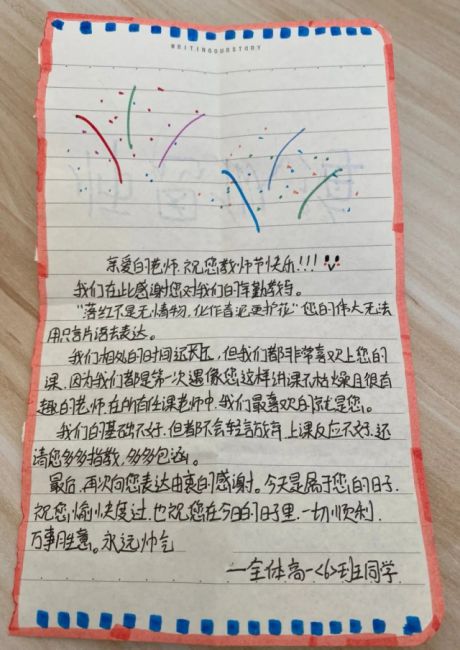 WRITINGOURSTORY
亲爱的老师,祝您教师节快乐!!!
我们在此感谢您对我们的辛勤教导。
“落红不是无情物,化作春泥更护花”您的伟大无法
用只言片语来表达。
我们相处的时间还不长,但我们都非常喜欢上您的
课,因为我们都是第一次遇像您这样讲课不枯燥且很有
趣的老师,在所有任课老师中,我们最喜欢的就是您。
我们的基础不好,但都不会轻言放弃,上课反应不好,还
请您多多指教,多多包涵。
最后,再次向您表达由衷的感谢。今天是属于您的日子,
祝您愉快度过,也祝您在今日的日子里,一切顺利,
万事胜意。永远帅气
一全体高一<6>班同学